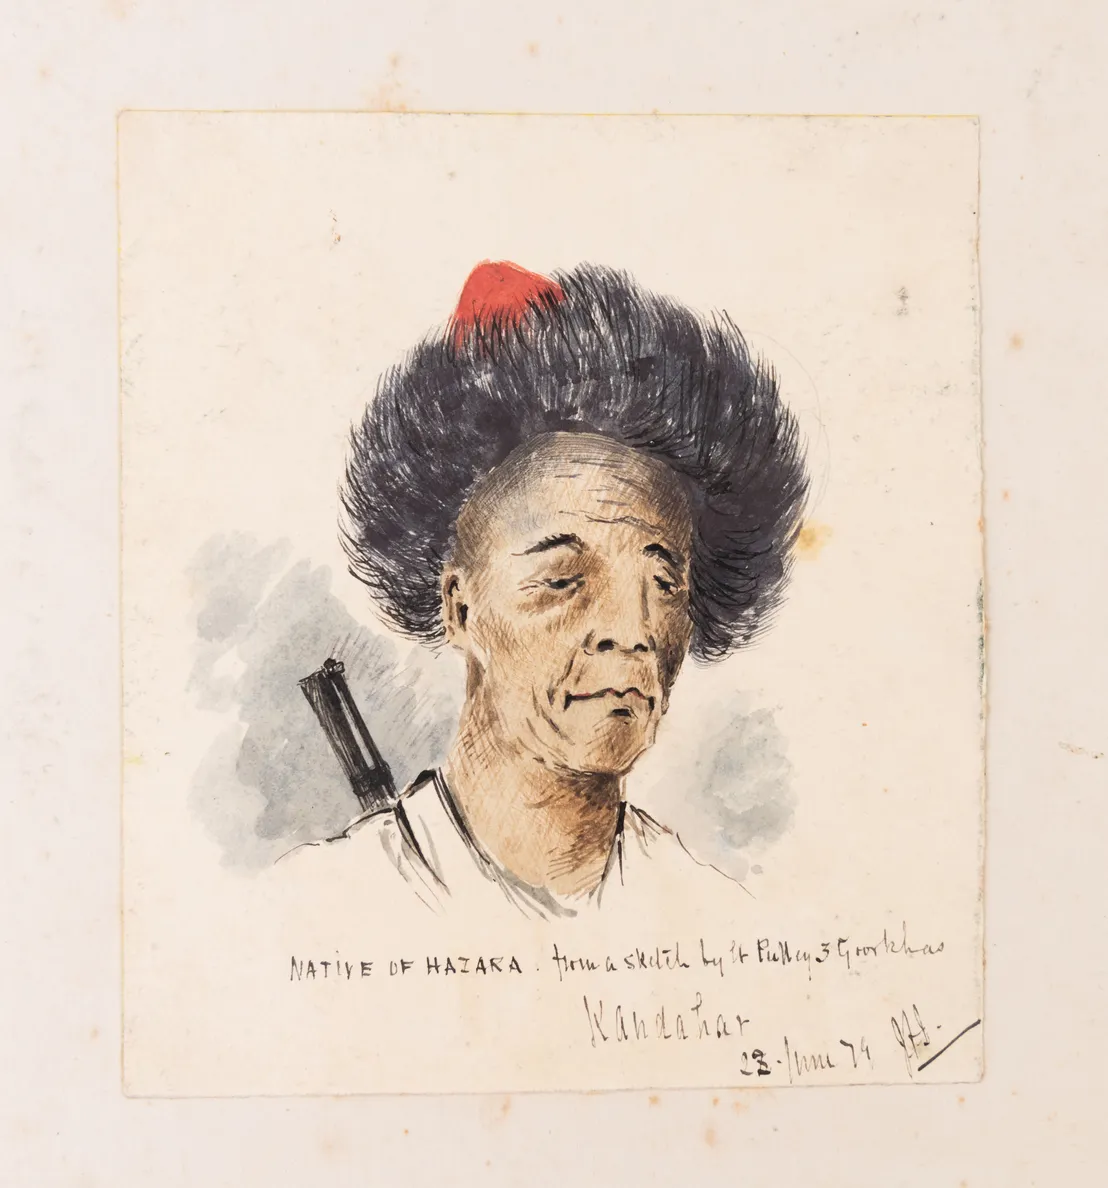 NATIVE OF HAZARA. from a sketch by Lt Pulley 3 Goorkhas
Kandahar
23. June 79